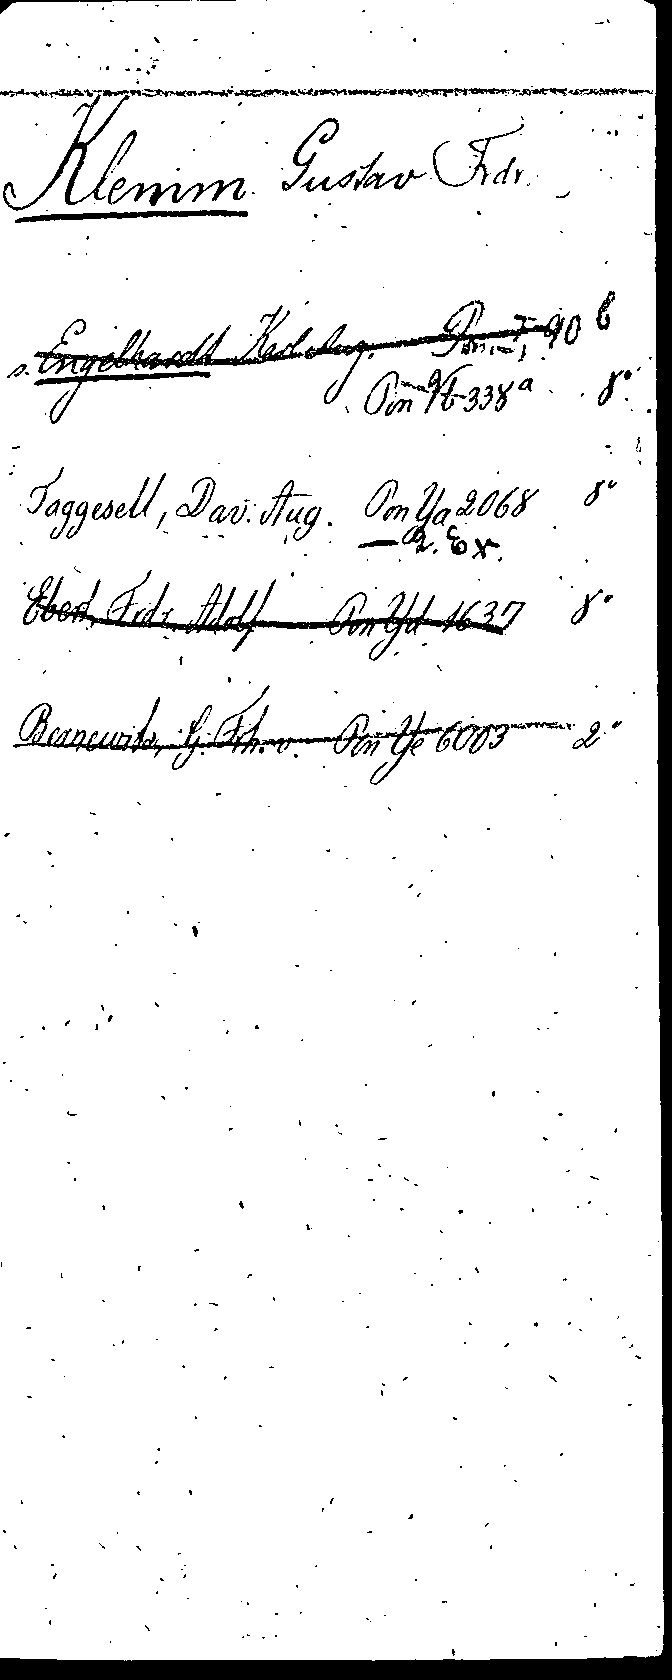 Klemm Gustav Frdr.
s. Engelhardt Karl Aug. 90 b
Pon Vb 338 a 8°
Taggesell, Dav. Aug. Pon Ya 2068 8°
— 2. Ex.
Ebert, Frdr. Adolf Pon Yd 1637 8°
Bernewitz, H. Frh. v. Pon Ye 6003 2°